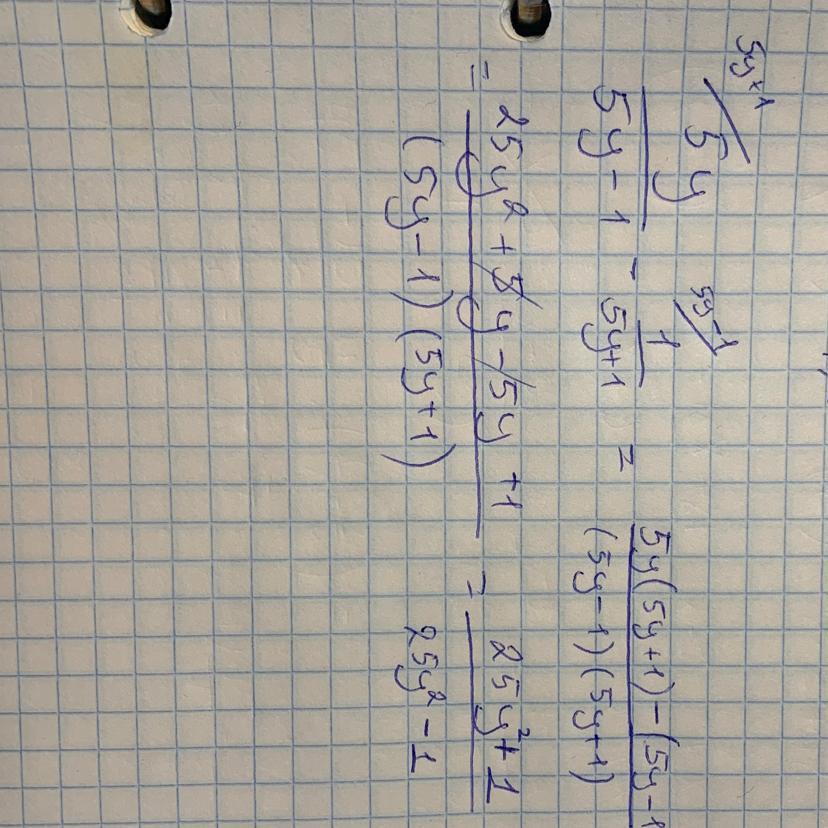 5y+1 / 5y 5y-1 / 1 5y(5y+1)-(5y-1
5y-1 - 5y+1 = (5y-1)(5y+1)
= 25y² + 5y - 5y + 1 = 25y² + 1
(5y-1)(5y+1) 25y² - 1